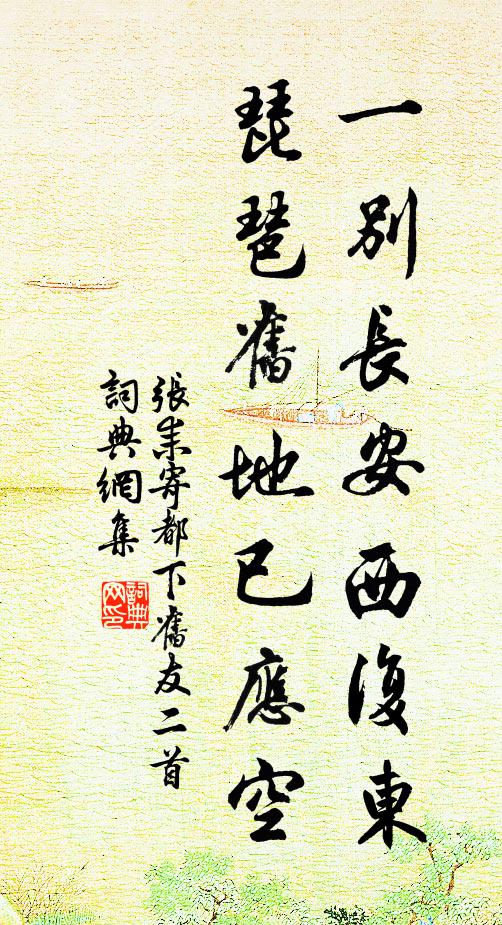 一別長安西復東
琵琶舊地已應空
張耒寄都下舊友二首
詞典網集
詞典
网印